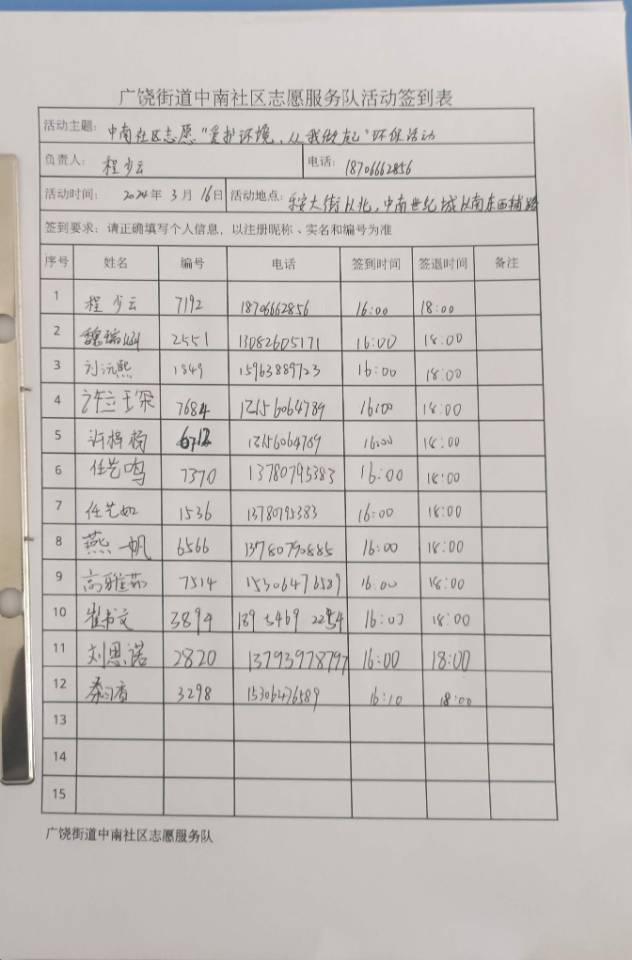 广饶街道中南社区志愿服务队活动签到表
活动主题: 中南社区志愿"爱护环境,从我做起"环保活动
负责人: 程少云 电话: 18706662856
活动时间: 2024年3月16日 活动地点: 乐安大街以北,中南世纪城以南东西辅路
签到要求: 请正确填写个人信息，以注册昵称、实名和编号为准
序号 姓名 编号 电话 签到时间 签退时间 备注
1 程少云 7192 18706662856 16:00 18:00
2 魏瑞涵 2551 13082605171 16:00 18:00
3 刘沅熙 1849 15963889723 16:00 18:00
4 7684 16:00 18:00
5 16:00 18:00
6 任艺鸣 7370 13780795383 16:00 18:00
7 任艺如 1536 13780795383 16:00 18:00
8 燕一帆 6566 13780790885 16:00 18:00
9 高雅茹 7514 15306476589 16:00 18:00
10 崔书文 3894 16:00 18:00
11 刘思诺 2820 13793978797 16:00 18:00
12 3298 15306476589 16:10 18:00
13
14
15
广饶街道中南社区志愿服务队